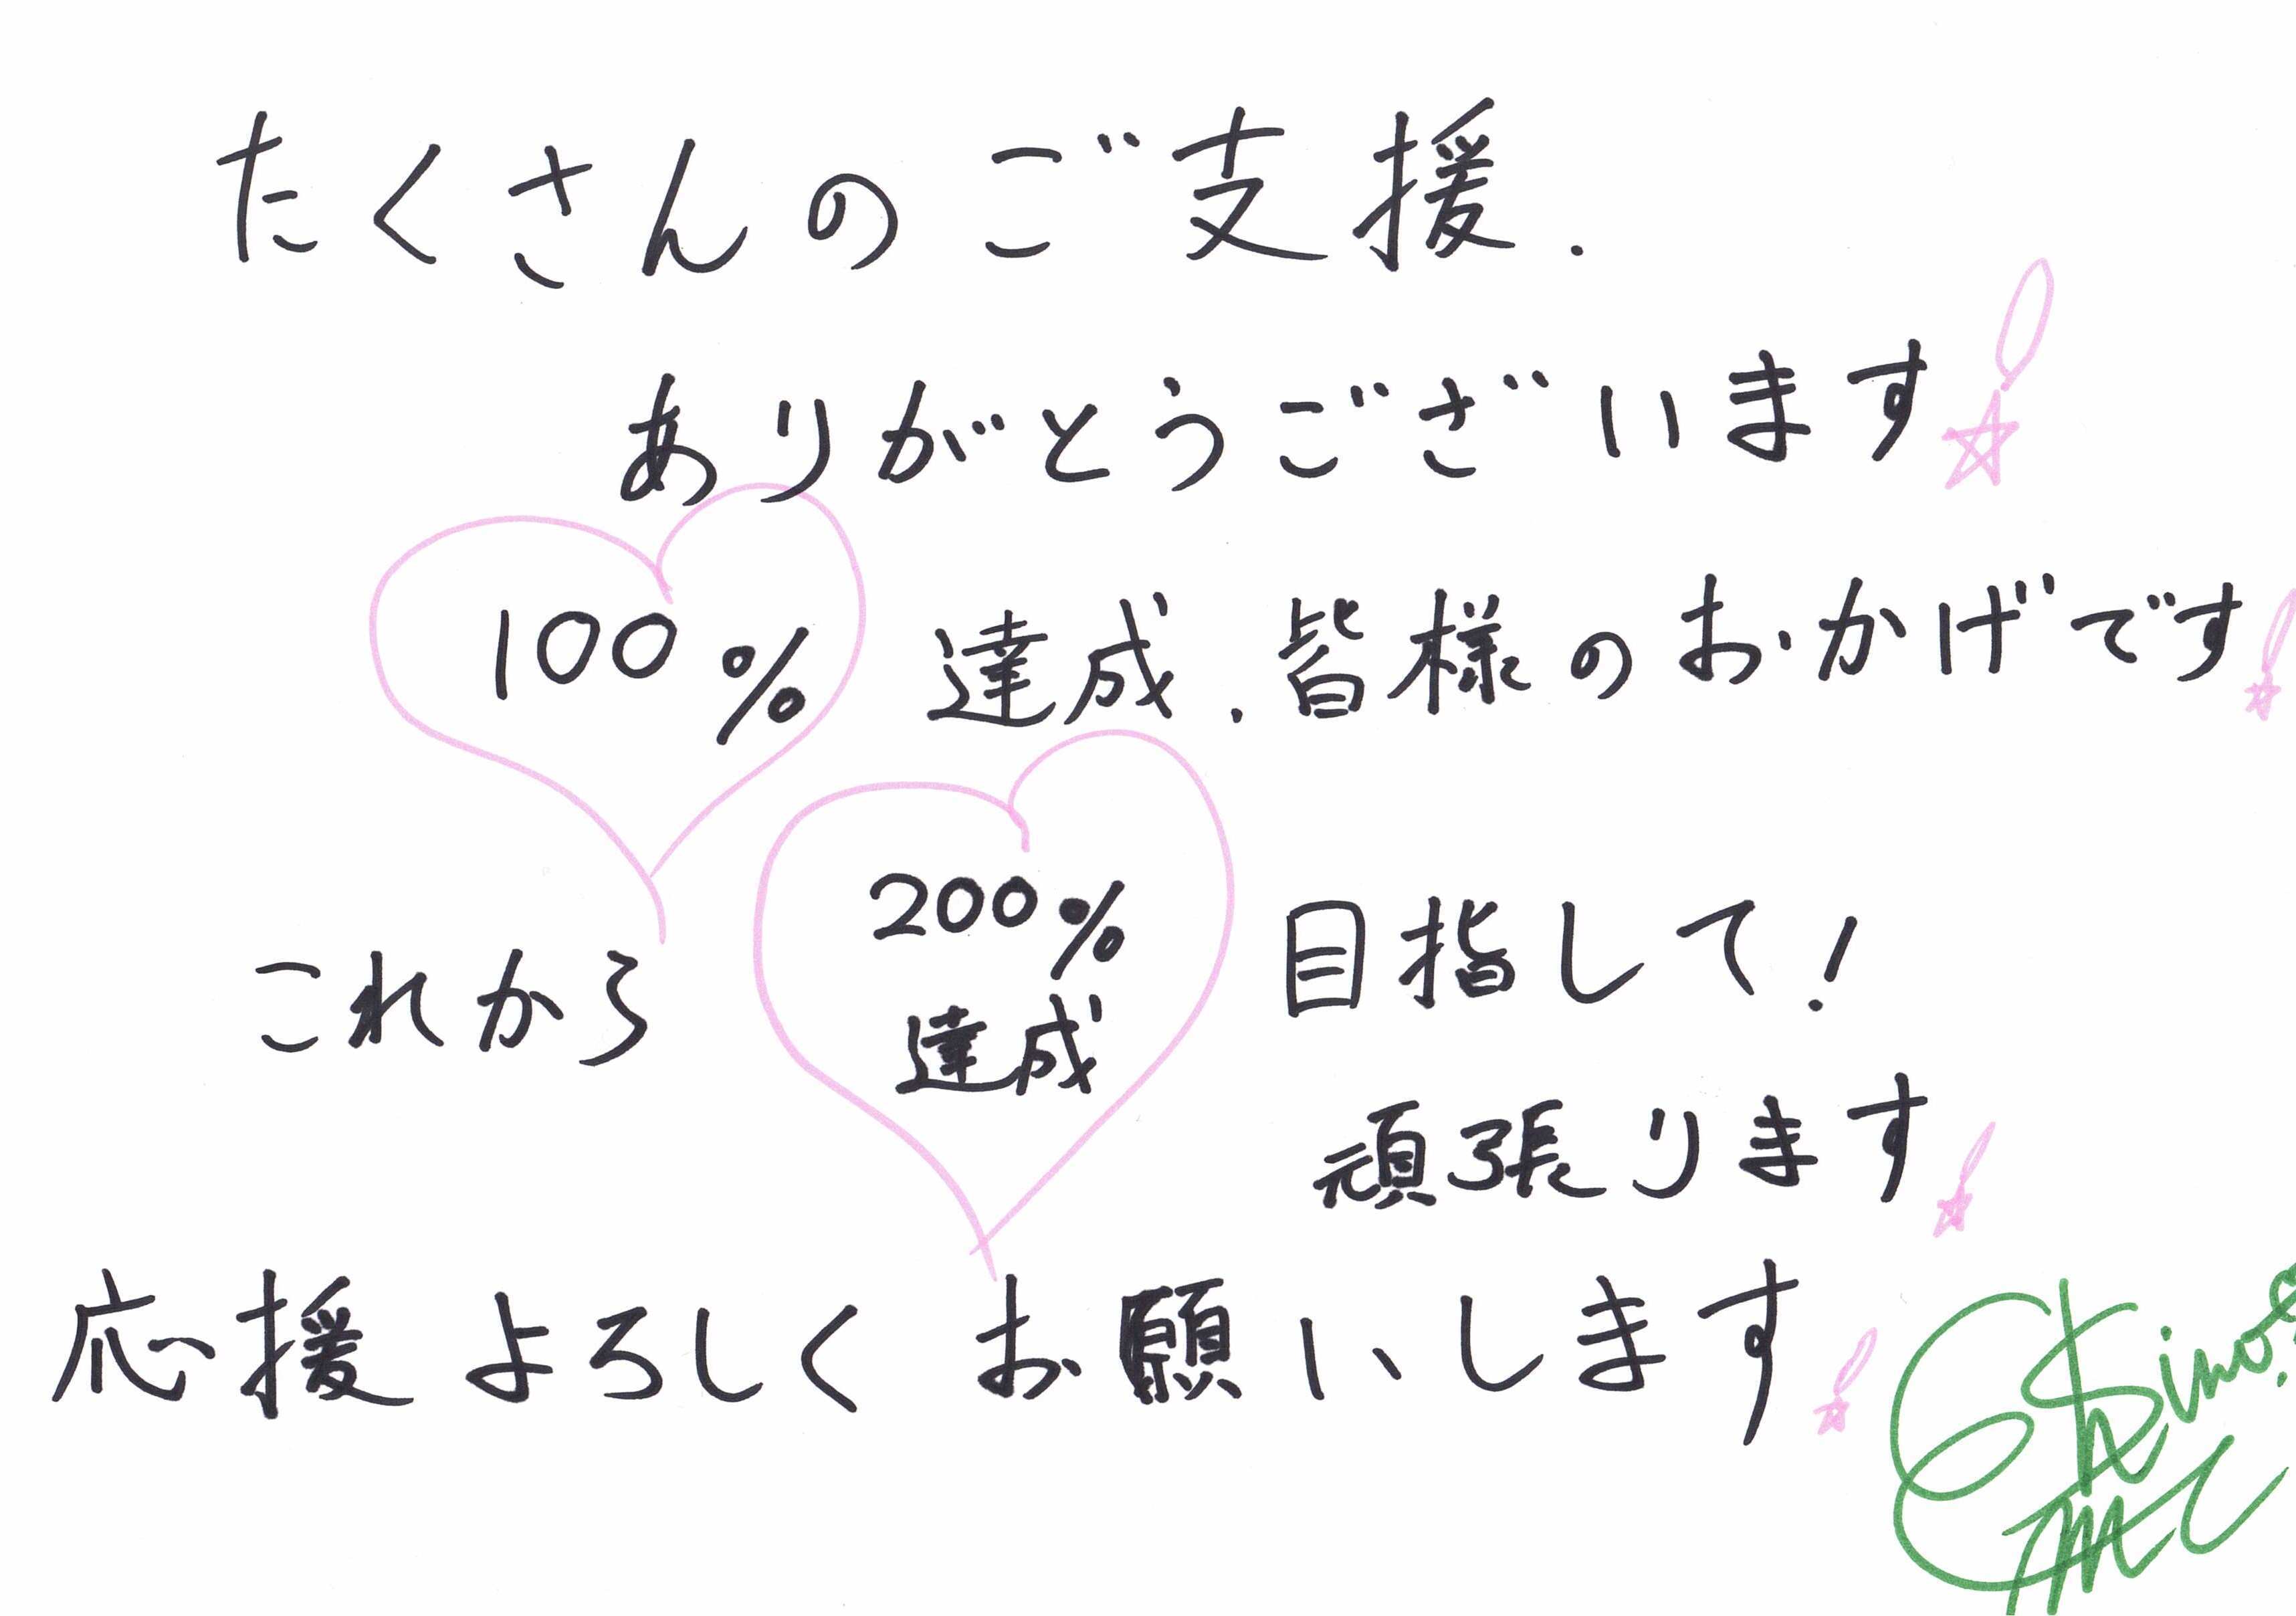 たくさんのご支援.
ありがとうございます!
100% 達成.皆様のおかげです!
これから 200% 達成 目指して!
頑張ります!
応援よろしくお願いします!